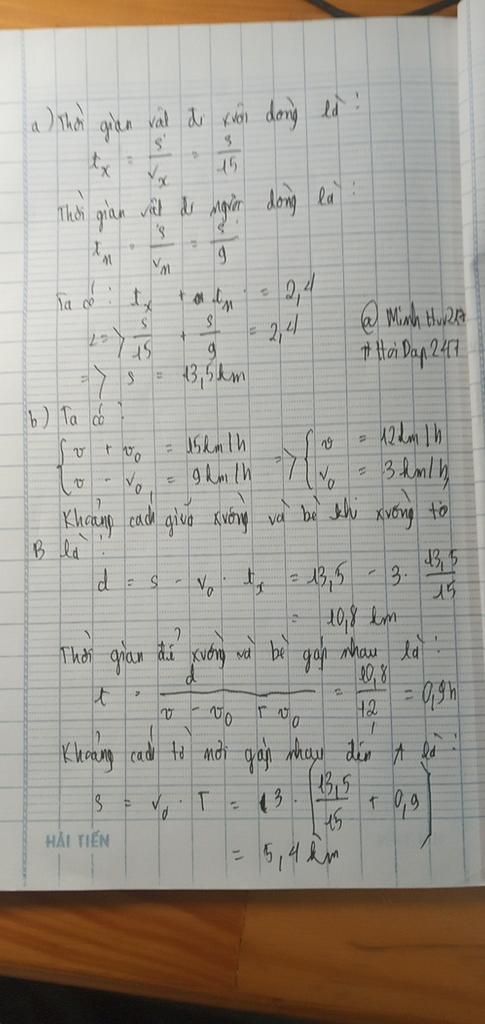 a) Thời gian vât đi xuôi dòng là :
t_x = s/v_x = s/15
Thời gian vật đi ngược dòng là :
t_n = s/v_n = s/9
Ta có : t_x + t_n = 2,4
<=> s/15 + s/9 = 2,4
=> s = 13,5km
@ Minh Huy217
# HoiDap247
b) Ta có :
{ v + v_0 = 15km/h => { v = 12km/h
{ v - v_0 = 9km/h { v_0 = 3km/h
Khoảng cách giữa xuồng và bè khi xuồng tới
B là :
d = s - v_0 . t_x = 13,5 - 3. 13,5/15
= 10,8 km
Thời gian để xuồng và bè gặp nhau là :
t = d/(v - v_0 + v_0) = 10,8/12 = 0,9h
Khoảng cách từ nơi gặp nhau đến A là :
s = v_0 . T = 3 . (13,5/15 + 0,9)
= 5,4 km
HẢI TIẾN